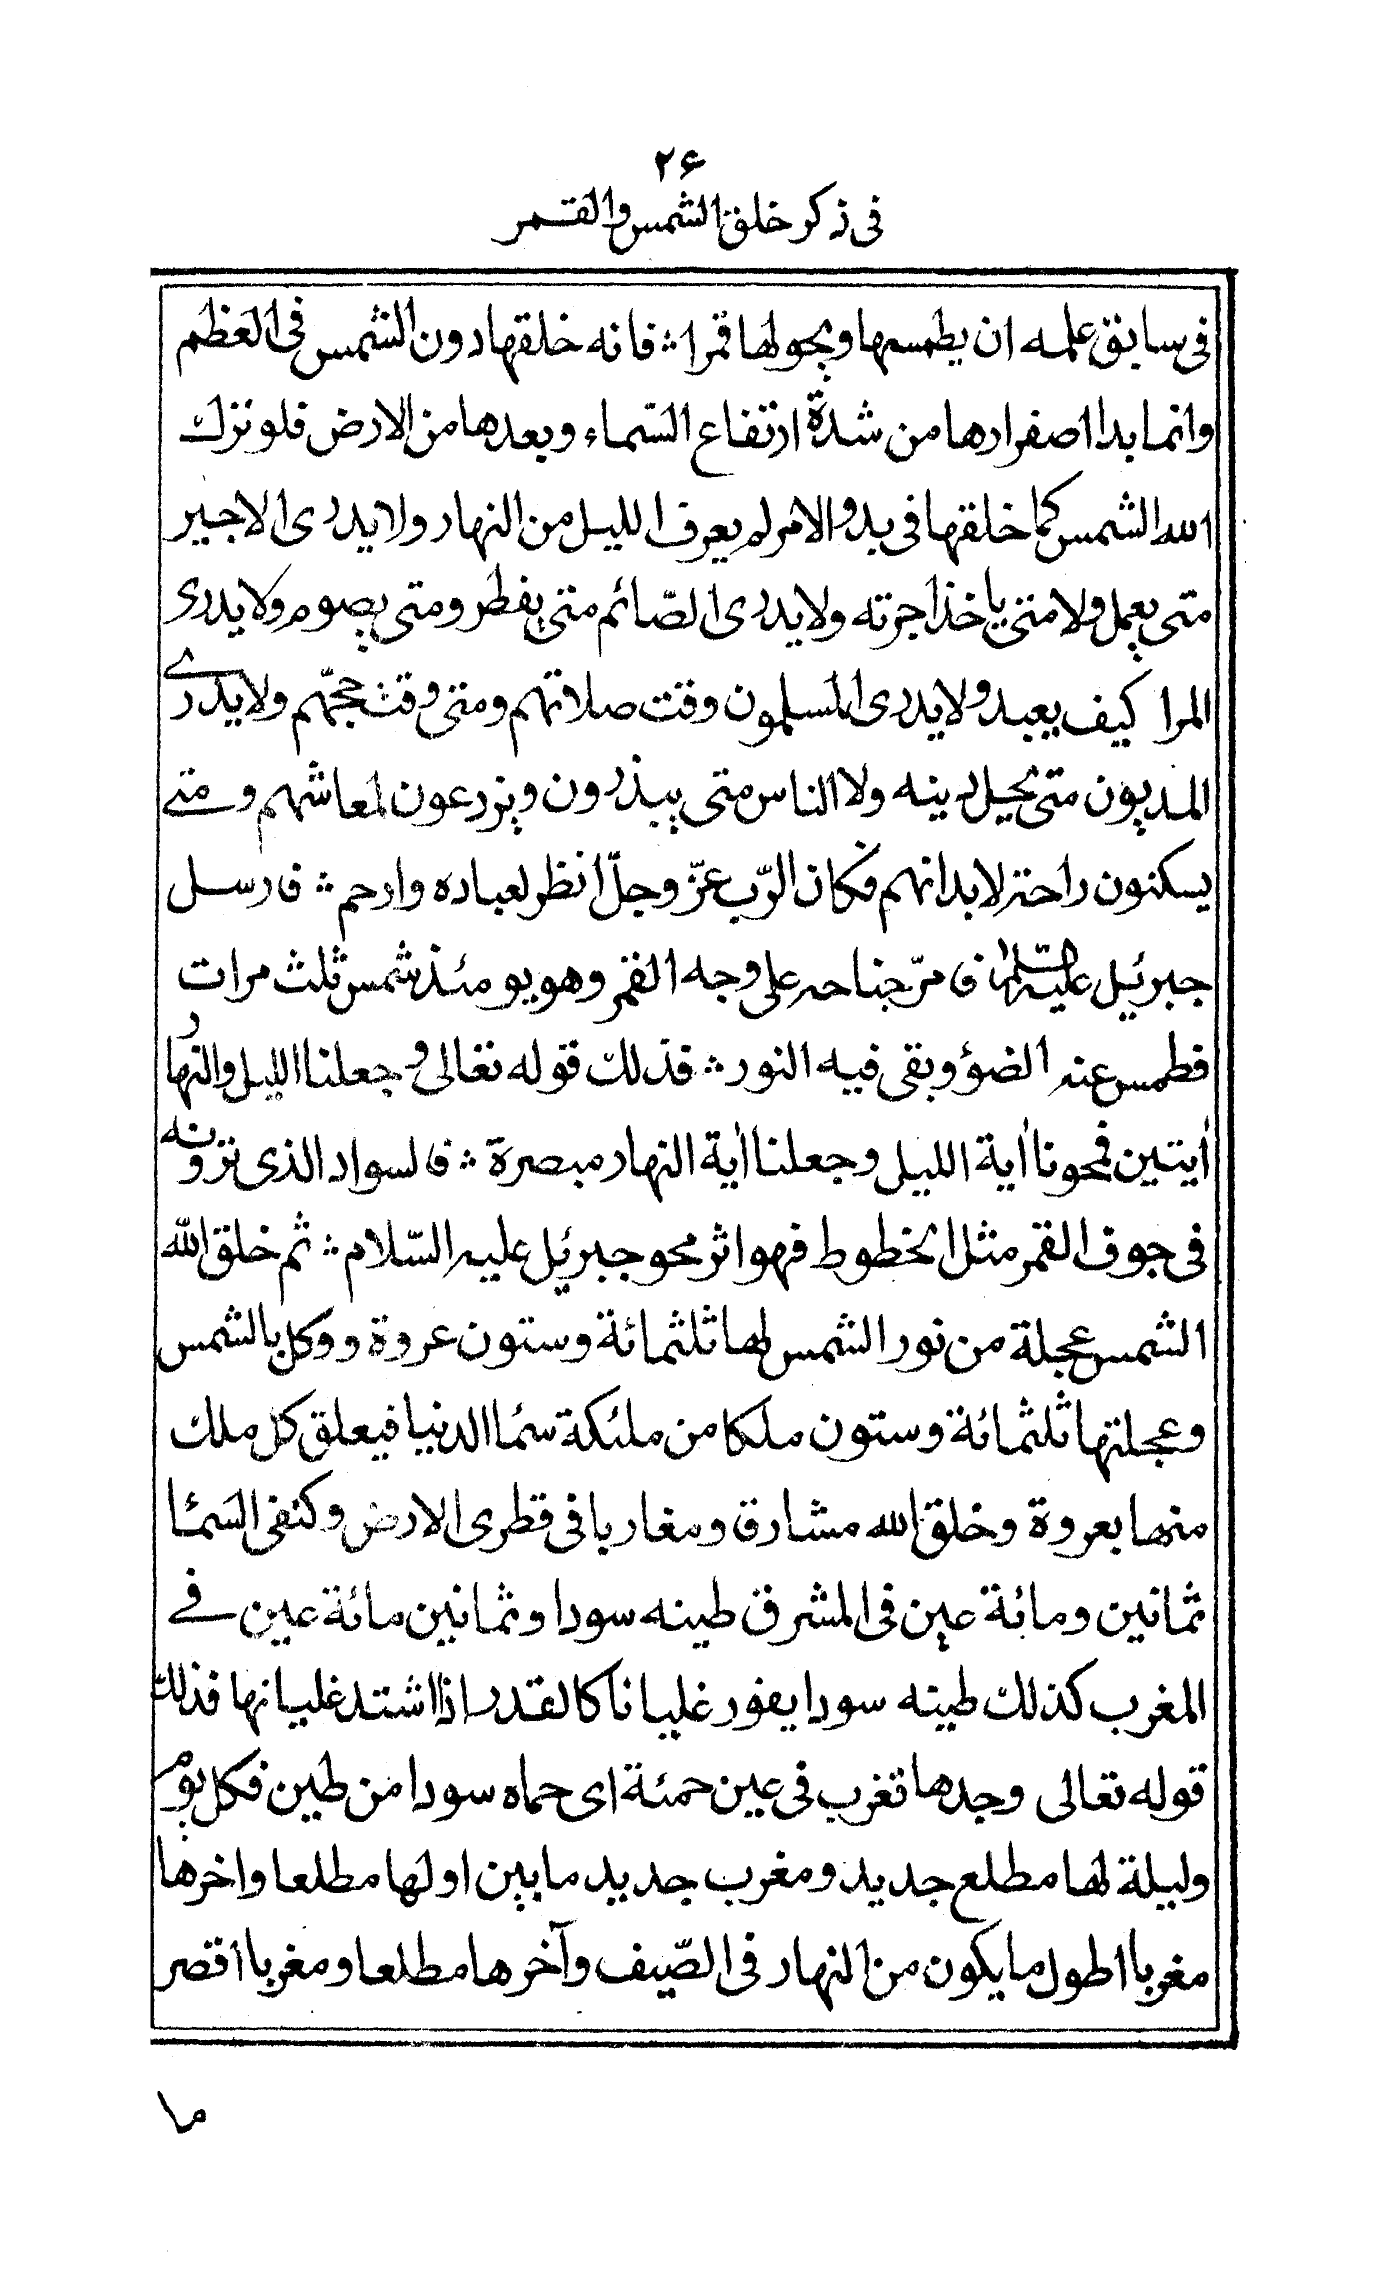 ۲۶
فى ذكر خلق الشمس والقمر
فى سابق علمه ان يطمسها ويحولها قمرا ؞ فانه خلقها دون الشمس فى العظم
وانما بدا اصفرارها من شدة ارتفاع السّماء وبعدها من الارض فلو ترك
الله الشمس كما خلقها فى بدو الامر لم يعرف الليل من النهار ولا يدرى الاجير
متى يعمل ولا متى ياخذ اجرته ولا يدرى الصّائم متى يفطر ومتى يصوم ولا يدرى
المرا كيف يعبد ولا يدرى المسلمون وقت صلاتهم ومتى وقت حجّهم ولا يدرى
المديون متى يحيل دينه ولا الناس متى يبذرون ويزرعون لمعاشهم ومتى
يسكنون راحتر لابدانهم فكان الرّب عزّ وجلّ انظر لعباده وارحم ؞ فارسل
جبرئيل عليه السلام فامرّ جناحه على وجه القمر وهو يومئذ شمس ثلث مرات
فطمس عنه الضوؤ وبقى فيه النور ؞ فذلك قوله تعالى وجعلنا الليل والنهار
أيتين فمحونا أية الليل وجعلنا أية النهار مبصرة ؞ فالسواد الذى ترونه
فى جوف القمر مثل الخطوط فهو اثر محو جبرئيل عليه السّلام ؞ ثم خلق الله
الشمس عجلة من نور الشمس لها ثلثمائة وستون عروة ووكل بالشمس
وعجلتها ثلثمائة وستون ملكا من ملئكة سمٔا الدنيا فيعلق كل ملك
منها بعروة وخلق الله مشارق ومغاربا فى قطرى الارض وكنفى السمٔا
ثمانين ومائة عين فى المشرق طينه سودا وثمانين مائة عين فى
المغرب كذلك طينه سودا يفور غليانا كالقدر اذا اشتد غليانها فذلك
قوله تعالى وجدها تغرب فى عين حمئة اى حماه سودا من طين فكل يوم
وليلة لها مطلع جديد ومغرب جديد ما بين اولها مطلعا واخرها
مغربا اطول ما يكون من النهار فى الصّيف وآخرها مطلعا ومغربا اقصر
ما